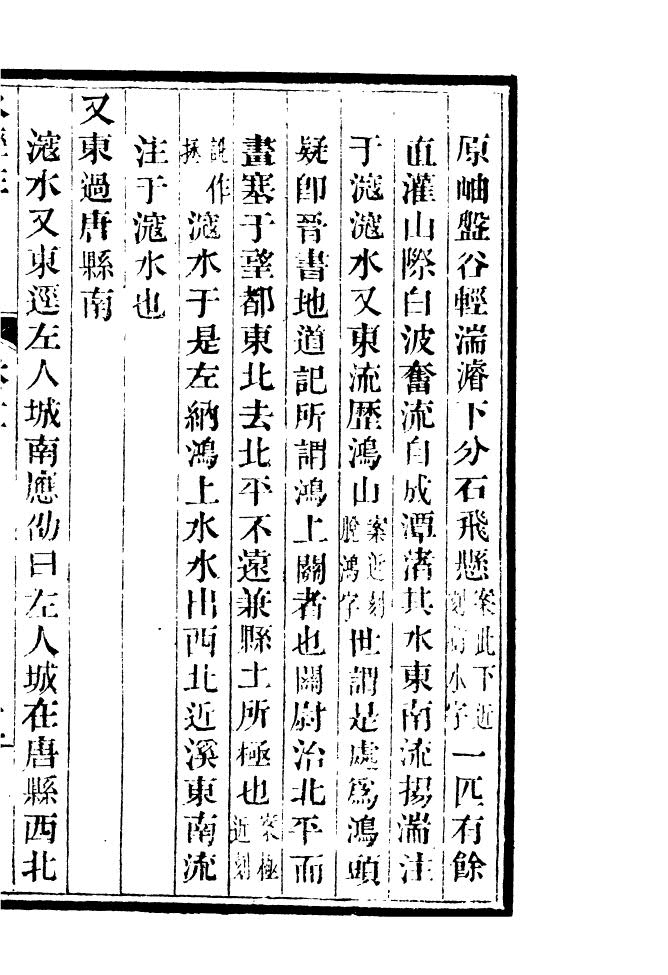 原岫盤谷輕湍濬下分石飛懸案此下近刻衍水字一匹有餘
直灌山際白波奮流自成潭渚其水東南流揚湍注
于滱滱水又東流歷鴻山案近刻脫鴻字世謂是處爲鴻頭
疑卽晉書地道記所謂鴻上關者也關尉治北平而
畫塞于望都東北去北平不遠兼縣土所極也案極近刻
訛作拯滱水于是左納鴻上水水出西北近溪東南流
注于滱水也
又東過唐縣南
滱水又東逕左人城南應劭曰左人城在唐縣西北